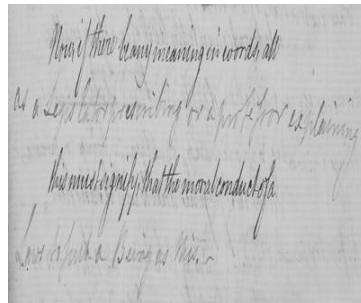 Now if there be any meaning in words, all
as a Legislator prescribing or a professor explaining
this must signify, that the moral conduct of a
Laws to such a Being as this. -